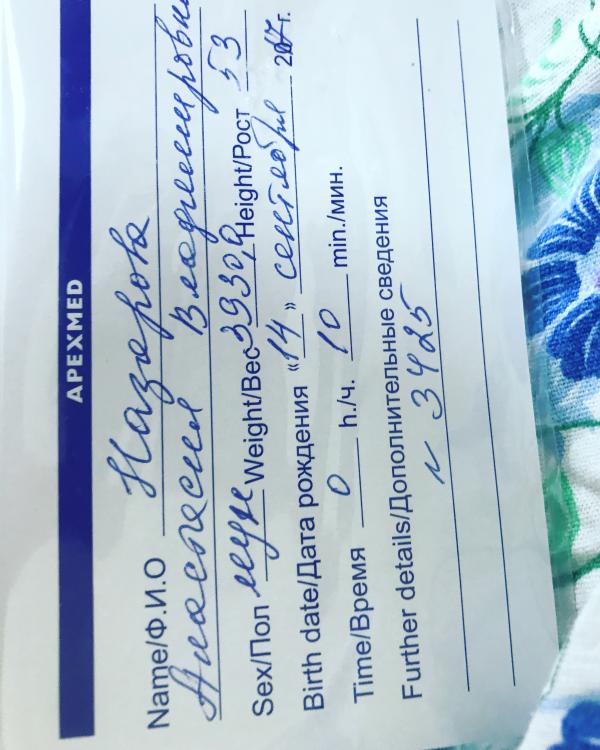 APEXMED
Name/Ф.И.О Назарова
Анастасия Владимировна
Sex/Пол муж Weight/Вес 3930,0 Height/Рост 53
Birth date/Дата рождения "14" сентября 2017г.
Time/Время 0 h./ч. 10 min./мин.
Further details/Дополнительные сведения
N 3425